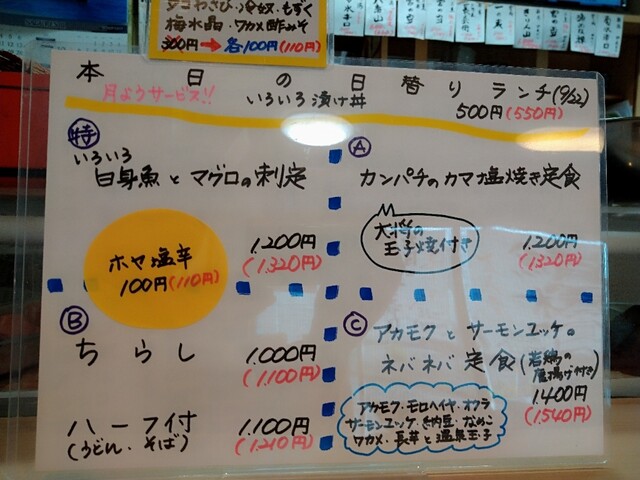 梅水晶・ワカメ酢みそ
300円→各100円(110円)
本日の日替りランチ(9/22)
月ようサービス!!
いろいろ漬け丼
500円(550円)
特
いろいろ
白身魚とマグロの刺定
1.200円
(1.320円)
ホヤ塩辛
100円(110円)
A
カンパチのカマ塩焼き定食
大将の
玉子焼付き
1.200円
(1.320円)
B
ちらし
1.000円
(1.100円)
ハーフ付
(うどん・そば)
1.100円
(1.210円)
C
アカモクとサーモンユッケの
ネバネバ定食(若鶏の
唐揚げ付き)
1.400円
(1.540円)
アカモク・モロヘイヤ・オクラ
サーモンユッケ・納豆・なめこ
ワカメ・長芋と温泉玉子